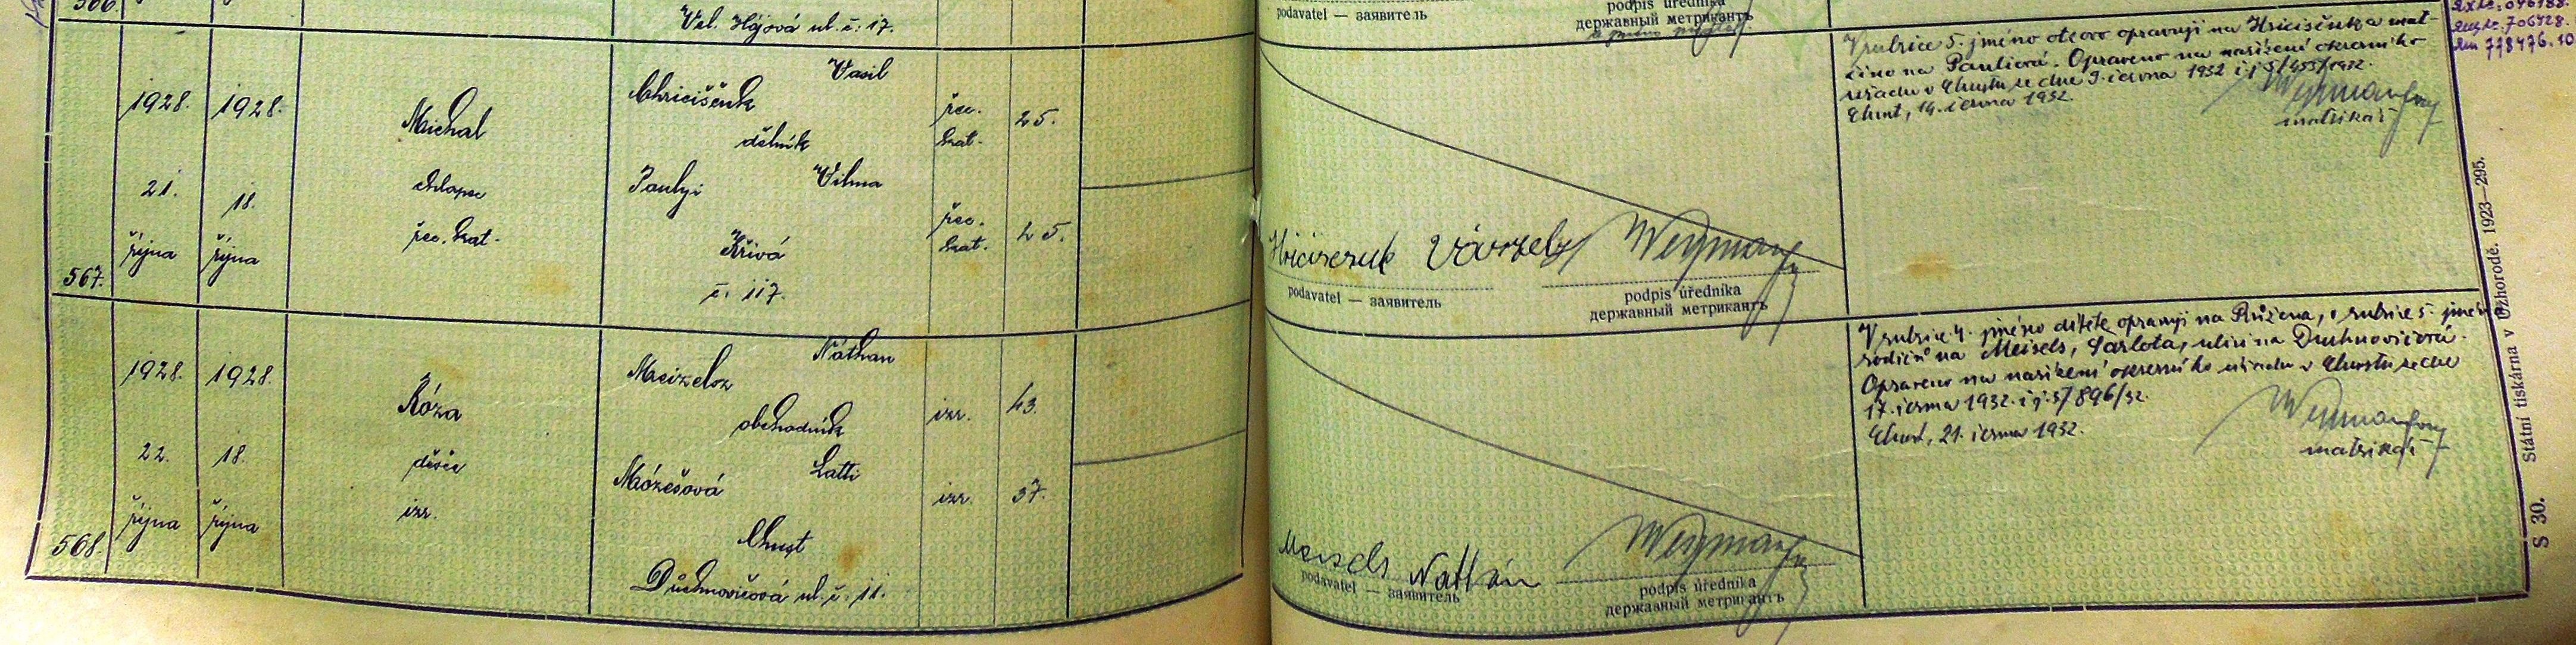 566.
Vel. Hájová ul. č: 17.
podavatel — заявитель
podpis úředníka
державный метрикантъ
706428.
778476.10
V rubrice 5. jméno otcovo opravuji na Hricisčuk a mat-
čino na Pauliová. Opraveno na nařízení okresního
úřadu v Chustu ze dne 9. června 1932 čj 5/455/1932.
Chust, 14. června 1932.
matrikář
567.
1928.
21.
října
1928.
18.
října
Michal
chlapec
řec. kat.
Vasil
Chricišcuk
dělník
Paulyi Vilma
Křivá
č. 117.
řec.
kat.
25.
řec.
kat.
25.
podavatel — заявитель
podpis úředníka
державный метрикантъ
V rubrice 4. jméno dítěte opravuji na Růžena, v rubrice 5. jméno
rodičů na Meisels, Šarlota, ulici na Duchnovičová.
Opraveno na nařízení okresního úřadu v Chustu ze dne
17. června 1932. čj. 5/896/32.
Chust, 21. června 1932.
matrikář
568.
1928.
22.
října
1928.
18.
října
Róza
děvče
izr.
Náthan
Meizelsz
obchodník
Mózešová Latti
Chust
Důchnovičová ul. č. 11.
izr.
43.
izr.
37.
Meisels Nathán
podavatel — заявитель
podpis úředníka
державный метрикантъ
Státní tiskárna v Užhorodě. 1923—295.
S 30.